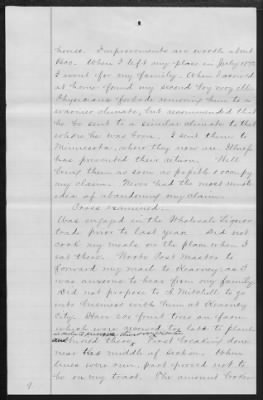 house. Improvements are worth about
$600. When I left my place in July 1873
I went for my family. When I arrived
at home found my second boy very ill.
Physicians forbade removing him to a
warmer climate, but recommended that
he be sent to a similar climate to that
where he was born. I sent them to
Minnesota, where they now are. Illness
has prevented their return. Will
bring them as soon as possible & occupy
my claim. Never had the most remote
idea of abandoning my claim.
Cross examined
Was engaged in the Wholesale Liquor
trade prior to last year. Did not
cook my meals on the place when I
sat there. Wrote Post Master to
forward my mail to Kearney, as I
was anxious to hear from my family.
Did not propose to Mitchell to go
into business with him at Kearney
City. Have 200 fruit trees on farm
which were received too late to plant
and
there. First breaking done
near the middle of section. When
lines were run, part proved not to
be on my tract. The amount broken
9